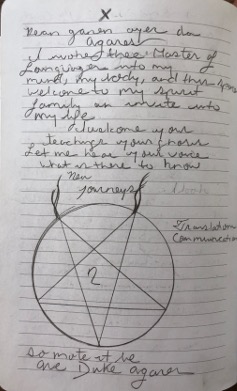 X
Rean ganen ayer da
Agares
I invoke thee Master of
Languages into my
mind, my body, and this space
welcome to my spirit
family an invite into
my life
I welcome your
teachings your chorus
Let me hear your voice
what is there to know
New
journeys
2
Translation
Communication
so mote it be
one Duke agares